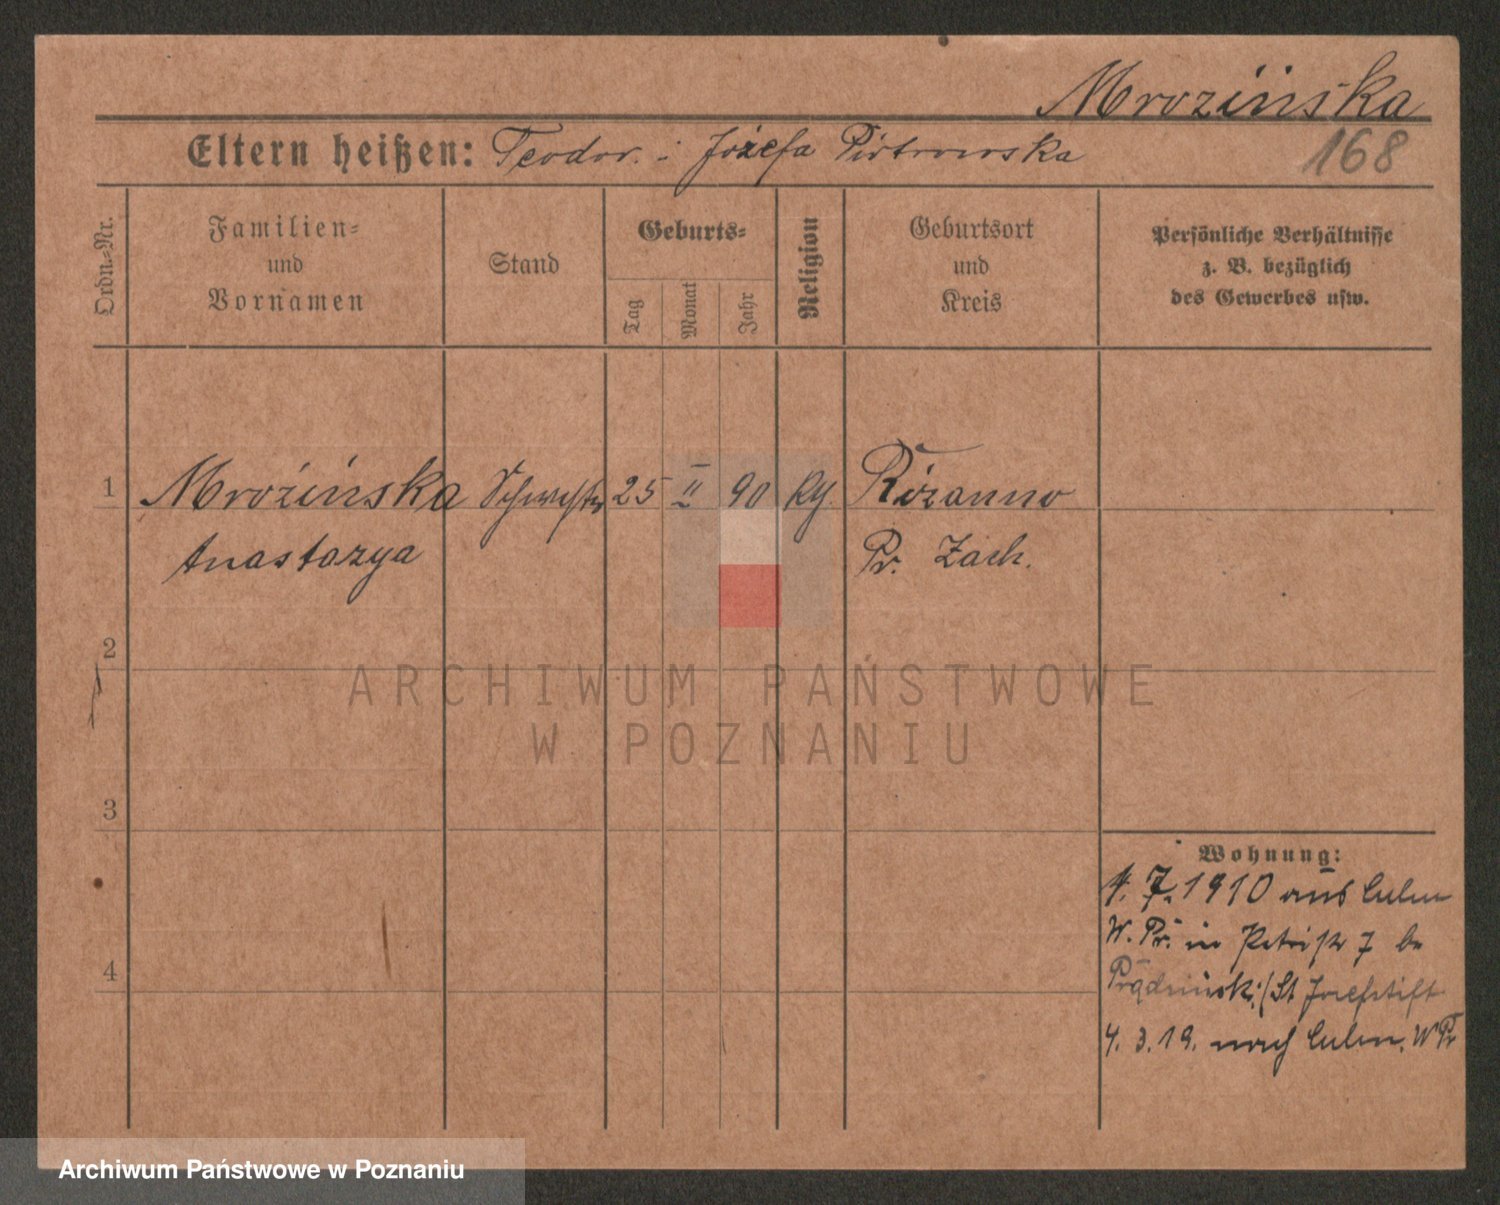 Mrozińska
168
Eltern heißen: Teodor i Józefa Piotrowska
Ordn.-Nr.
Familien-
und
Vornamen
Stand
Geburts-
Tag
Monat
Jahr
Religion
Geburtsort
und
Kreis
Persönliche Verhältnisse
z. B. bezüglich
des Gewerbes usw.
1 Mrozińska Schwester 25 II 90 Różanno
Anastazya Pr. Zach.
2
3
4
Wohnung:
4. 7. 1910 aus Culm
W. Pr. in Petristr 7
St Josefstift
4. 3. 19. nach Culm. W Pr
ARCHIWUM PAŃSTWOWE
W POZNANIU
Archiwum Państwowe w Poznaniu